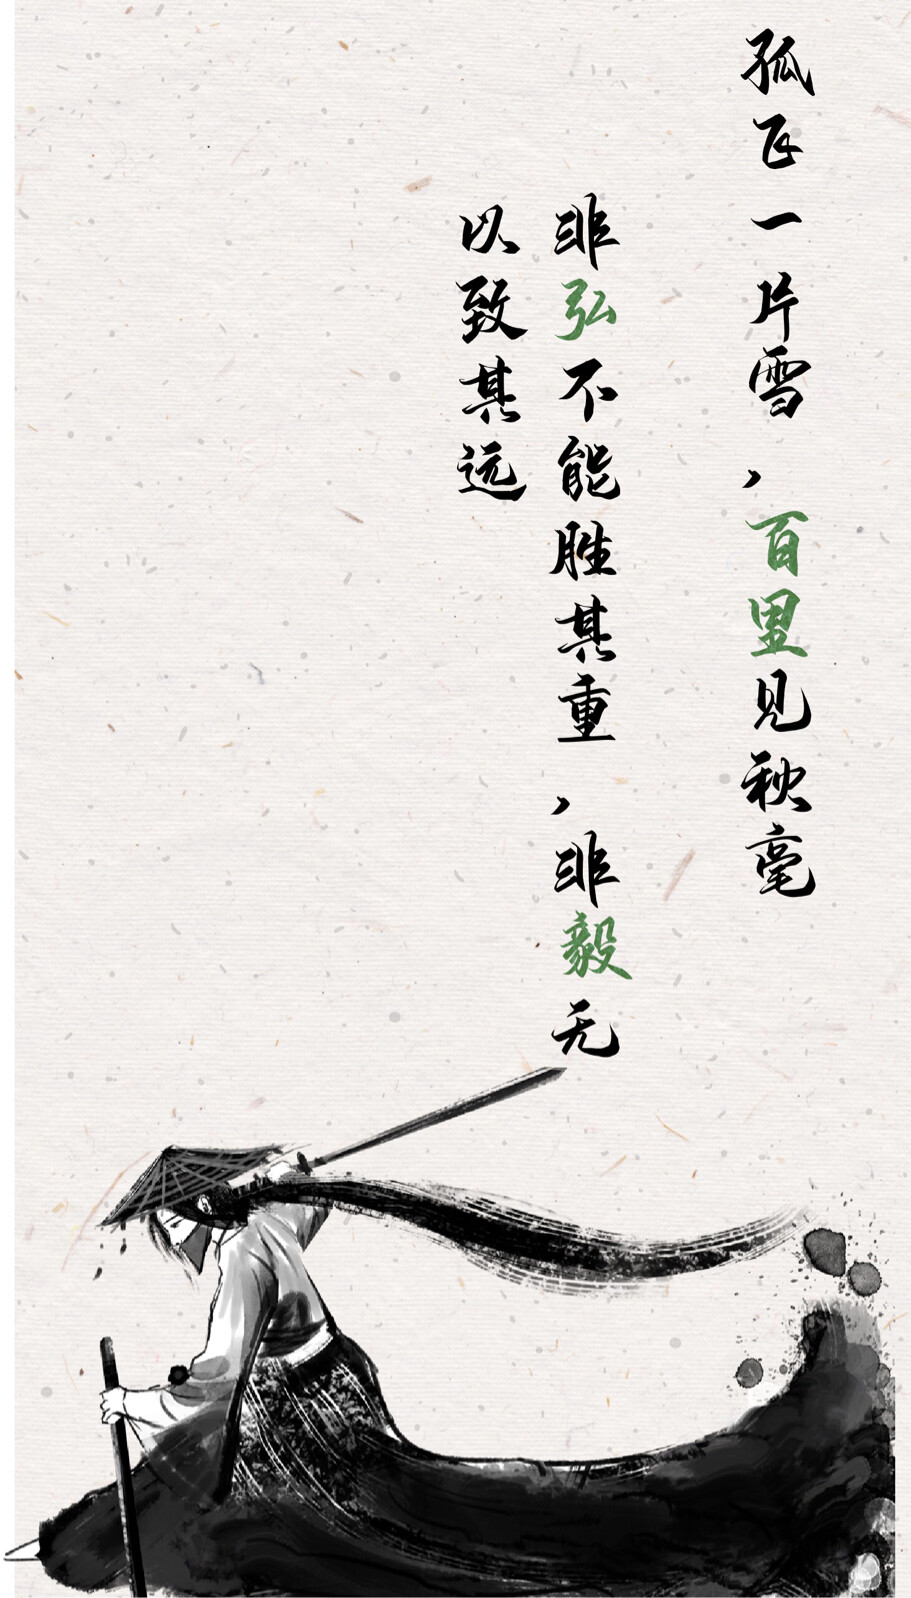 孤飞一片雪，百里见秋毫
非弘不能胜其重，非毅无
以致其远